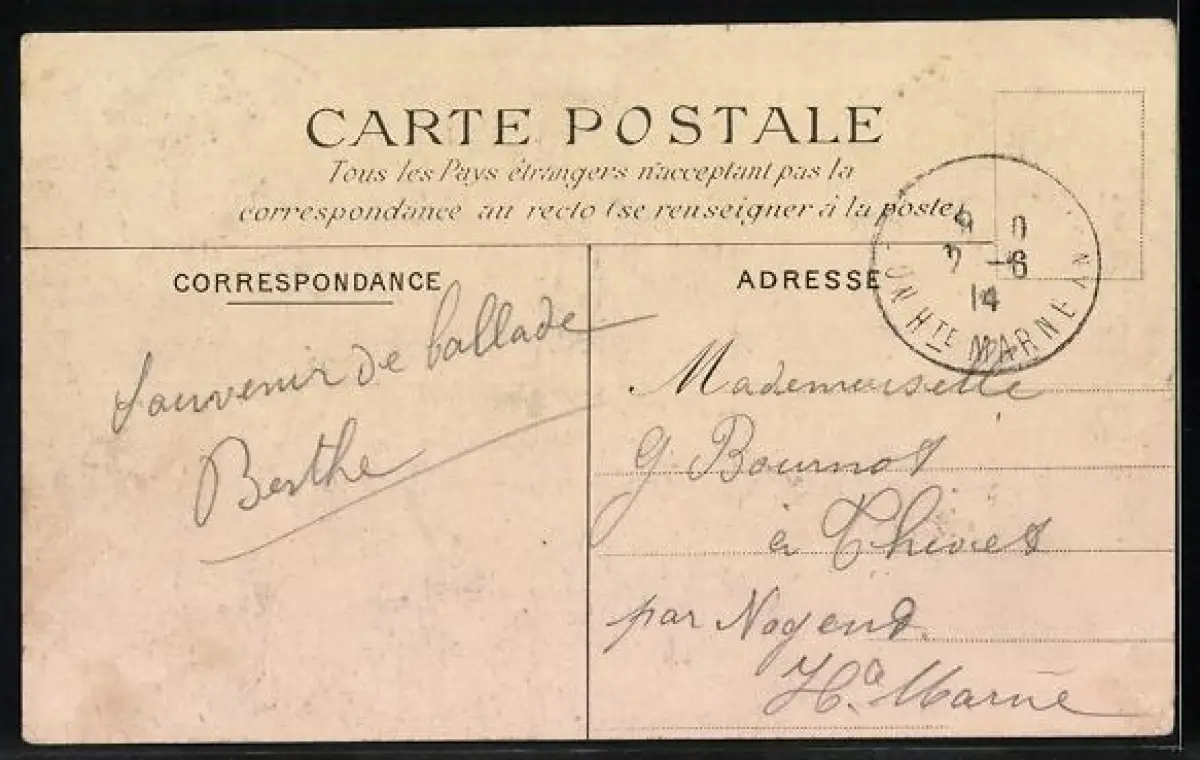 CARTE POSTALE
Tous les Pays étrangers n'acceptant pas la
correspondance au recto (se renseigner à la poste)
CORRESPONDANCE
ADRESSE
7 -6
14
HTE MARNE
Souvenir de ballade
Berthe
Mademoiselle
G. Bournot
à Thivet
par Nogent.
Hte Marne